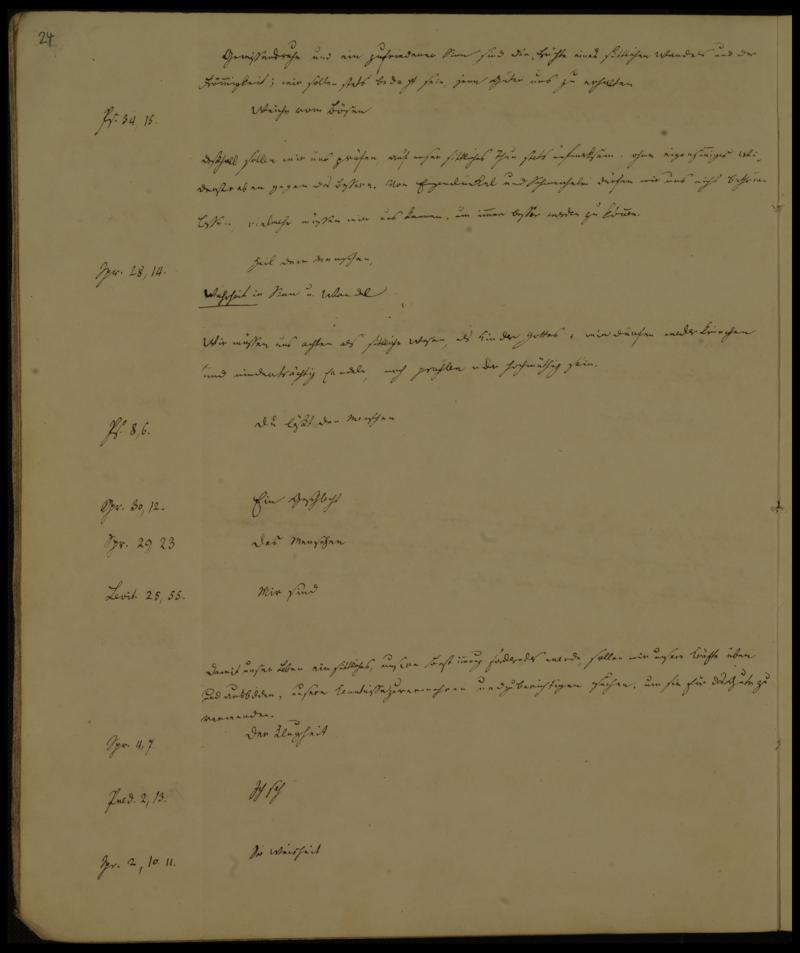 24
Gewissensruhe und ein zufriedener Sinn sind die Früchte eines sittlichen Wandels und der
Frömmigkeit; wir sollen stets bedacht sein, jene Güter uns zu erhalten
Ps. 34 15. Weiche vom Bösen
deßhalb sollen wir uns prüfen, auf unser sittliches Thun stets aufmerksam, ohne eigensinniges Wi-
derstreben gegen das Bessere. Von Eigendünkel und Schmeichelei dürfen wir uns nicht bethören
lassen, vielmehr müssen wir uns kennen, um immer besser werden zu können.
Spr. 28,14. Heil dem Menschen,
Wahrheit in Sinn u. Wandel
Wir müssen uns achten als sittliche Wesen, als Kinder Gottes; wir dürfen weder kriechen
und niederträchtig handeln, noch prahlen oder hochmüthig sein.
Ps. 8,6. Du läßt den Menschen
Spr. 30,12. Ein Geschlecht
Spr. 29 23 Des Menschen
Levit. 25, 55. Mir sind
Damit unser Leben ein sittliches, unsere Bestimmung fördernd werde, sollen wir unsere Kräfte üben
und ausbilden, unsere Kenntnisse zu vermehren und zu berichtigen suchen, um sie für das Gute zu
verwenden.
Spr. 4,7 Der Klugheit
Pred. 2,13. Ich sah
Spr. 2, 10 11. So Weisheit